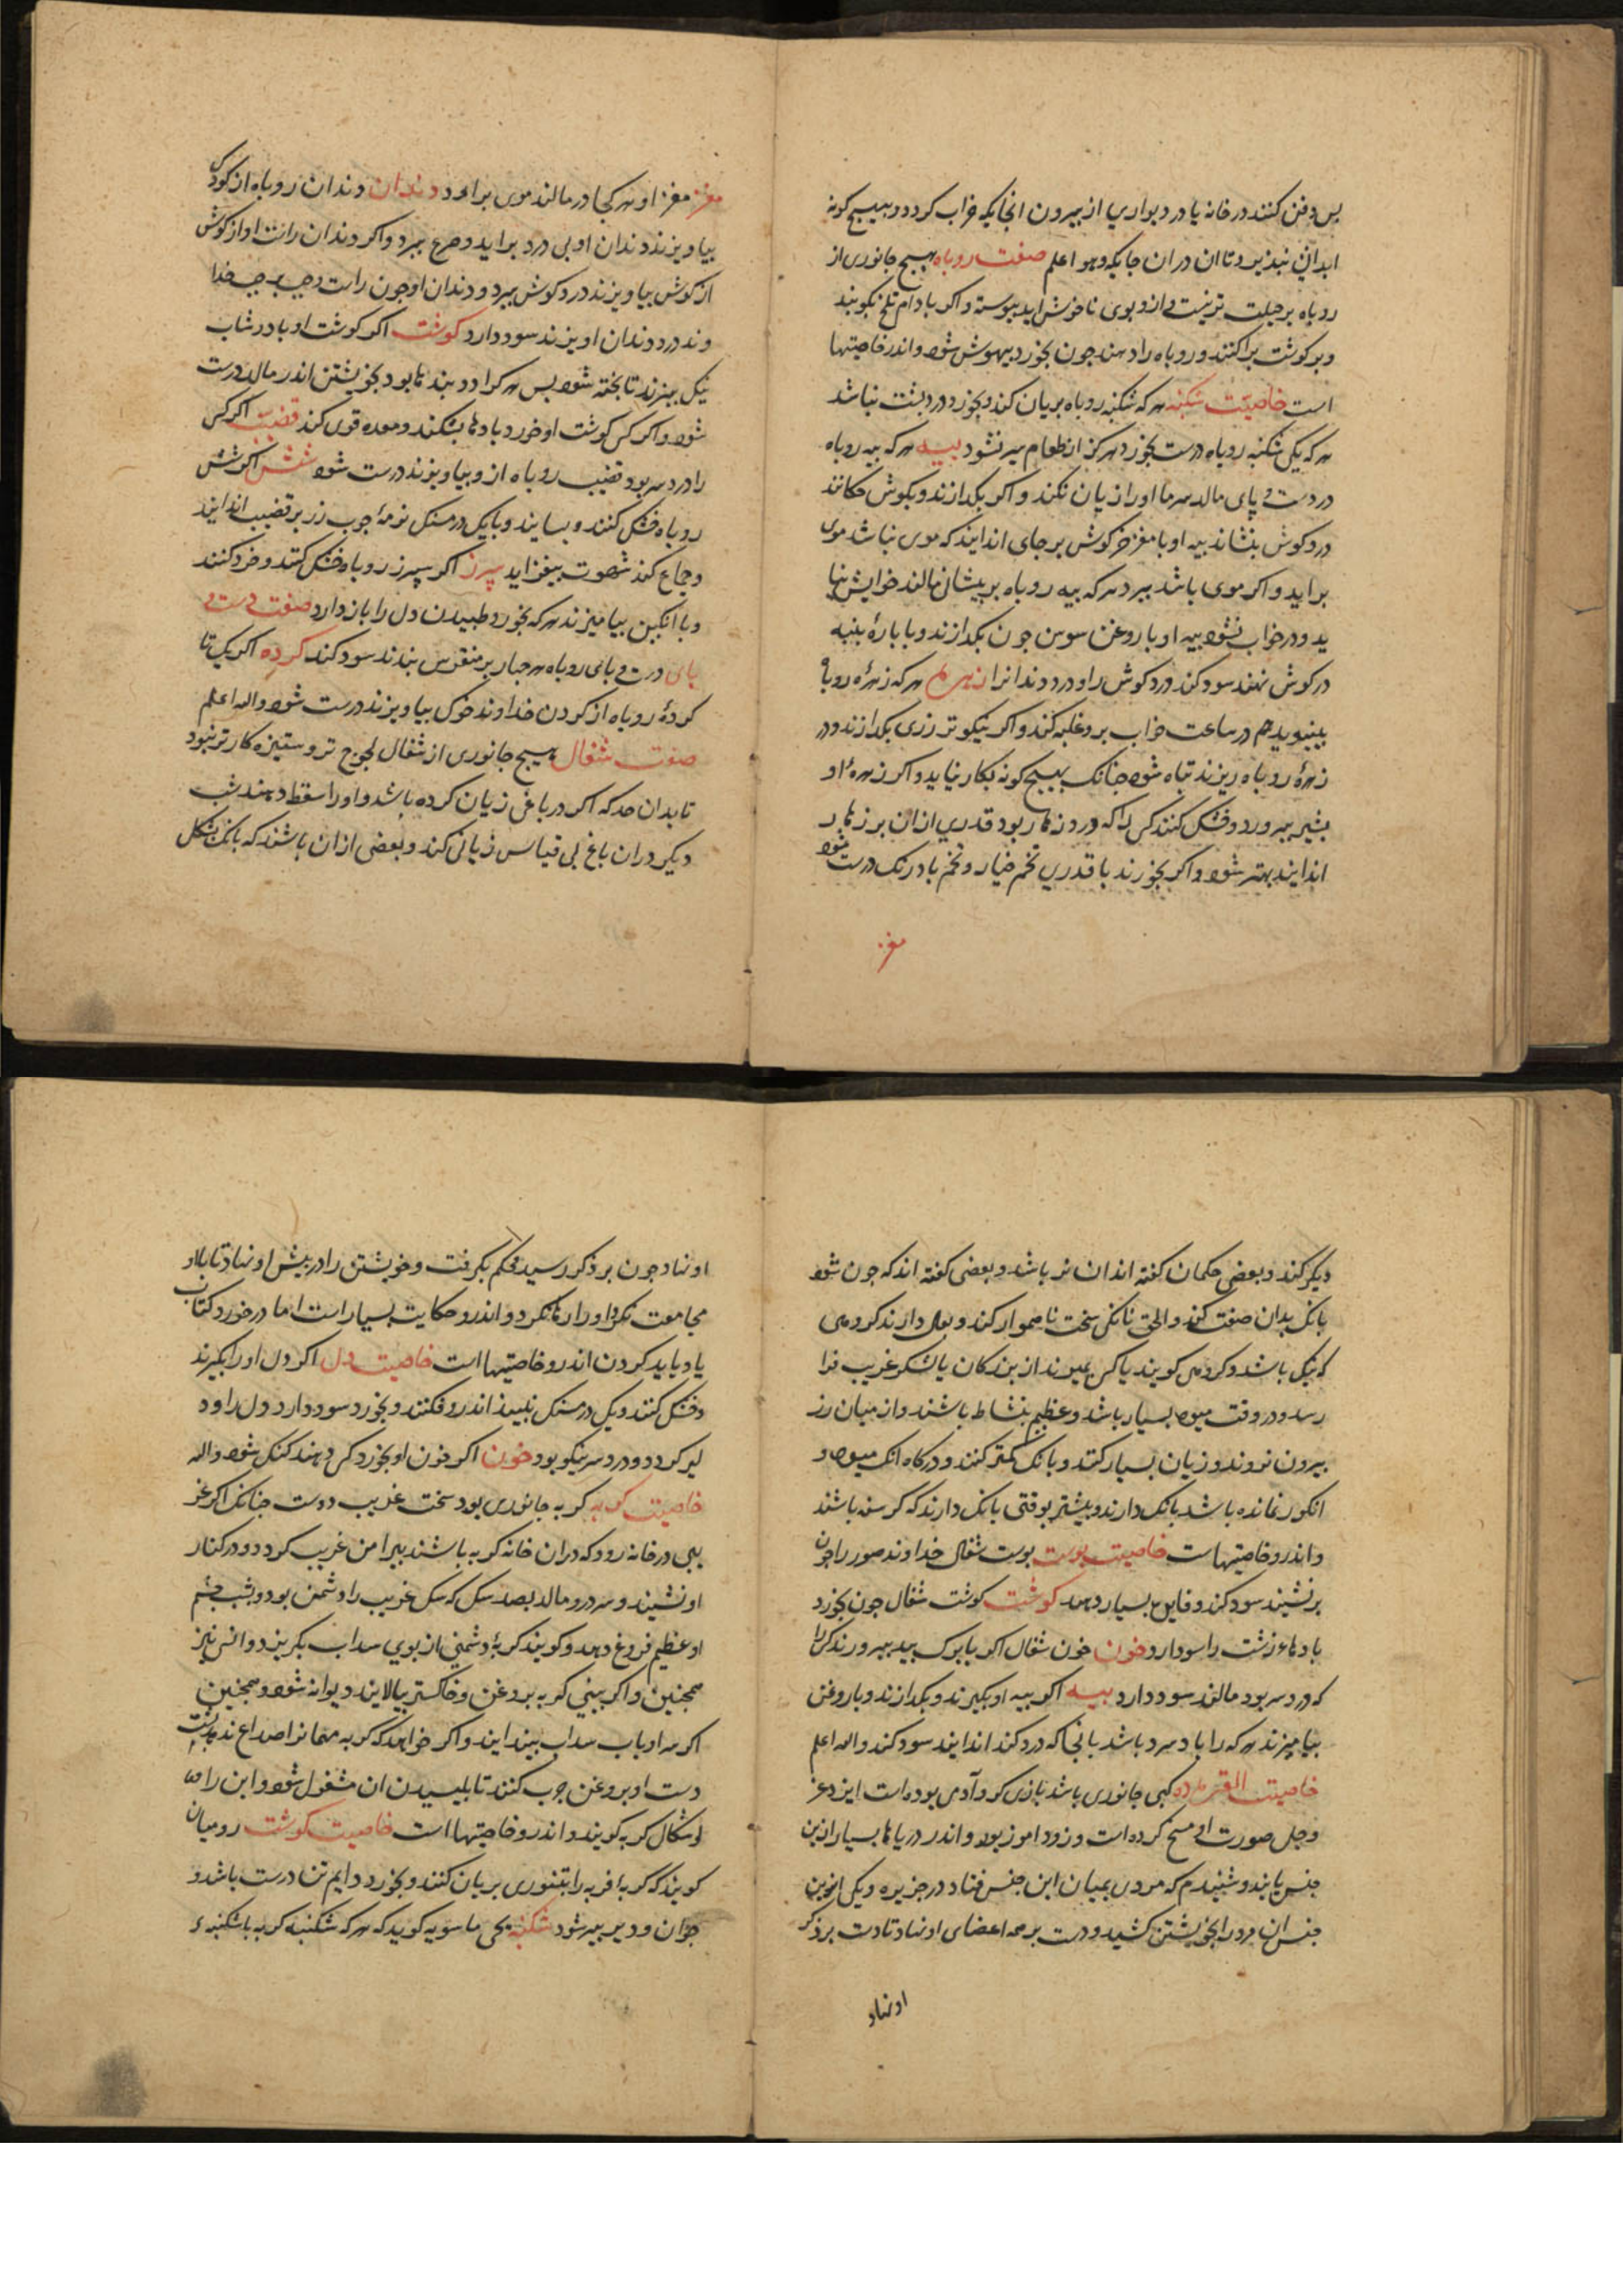 بس دفن کنند در خانه یا در دیواری از بیرون انجایکه خراب کردد و بهیچ کونه
ابدانی نبذیرد تا ان در ان جایکه و هو اعلم صفت روباه هیچ جانوری از
روباه برحیلت تر نیست و ازو بوی ناخوش اید بیوسته و اکر بادام تلخ بکوبند
و بر کوشت براکنند و روباه را دهند جون بخورد بیهوش شود و اندر خاصیتها
است خاصیت شکنبه هر که شکنبه روباه بریان کند و بخورد درد بشت نباشد
هر که یکی شکنبه روباه درست بخورد هرکز از طعام سیر نشود بیه هر که بیه روباه
در دست و پای مالد سرما او را زیان نکند و اکر بکدازند و بکوش چکانند
درد کوش بنشاند بیه او با مغز خرکوش بر جای اندایند که موی نباشد موی
براید و اکر موی باشد ببرد هر که بیه روباه بر بیشانی مالند خوابش
ید و در خواب نشود بیه او با روغن سوسن جون بکدازند و با بارهٔ بنبه
در کوش نهند سود کند درد کوش را و درد دندانرا زهره هر که زهرهٔ روباه
ببوید هم در ساعت خواب برو غلبه کند و اکر نیکوتر رزی بکدازند و در
زهرهٔ روباه ریزند تباه شود جنانک بهیچ کونه بکار نیاید و اکر زهرهٔ او
بشیر ببرورد و خشک کنند کسی را که درد زهار بود قدری ازان بر زهار
اندایند بهتر شود و اکر بخورند با قدری تخم خیار و تخم بادرنک درست شود
مغز
مغز مغز او هر کجا در مالند موی براورد دندان دندان روباه از کودک
بیاویزند دندان او بی درد براید و صرع ببرد و اکر دندان راست او از کوش
از کوش بیاویزند درد کوش ببرد و دندان او جون راست و جب
وند درد دندان اویزند سود دارد کوشت اکر کوشت او با در شاب
نیک ببزند تا بخته شود بس هر کرا درد بندها بود بخویشتن اندر مالد درست
شود و اکر کسی کوشت او خورد بادها بشکند و معده قوی کند قضیب اکر کسی
را درد سر بود قضیب روباه ازو بیاویزند درست شود شش اکر شش
روباه خشک کنند و بسایند و با یک درمسنک نرمهٔ جوب رز بر قضیب اندایند
و جماع کند شهوت بیفزاید سپرز اکر سپرز روباه خشک کنند و خرد کنند
و با انکبین بیامیزند هر که بخورد طبیدن دل را باز دارد صفت دست و
بای دست و بای روباه هر جهار بر منقرس بندند سود کند کرده اکر یک تا
کردهٔ روباه از کردن خداوند خوک بیاویزند درست شود والله اعلم
صفت شغال هیچ جانوری از شغال لجوج تر و ستیزه کارتر نبود
تا بدان حد که اکر در باغی زیان کرده باشد و او را سقط دهند شب
دیکر دران باغ بی قیاس زیانی کند و بعضی ازان باشند که بانک بشکل
دیکر کند و بعضی حکیمان کفته اند ان نر باشد و بعضی کفته اند که جون شود
بانک بدان صفت کند و الحق بانکی سخت ناهموار کند و دارند کرو می
کرنیک باشد و کروهی کویند یا کسی بمیرند از بزرکان یا لشکر غریب فرا
رسد و در وقت میوه بسیار باشد و عظیم بنشاط باشند و از میان رز
بیرون نروند و زیان بسیار کنند و بانک کمتر کنند و درکاه انک میوه و
انکور نمانده باشد بانک دارند و بیشتر بوقتی بانک دارند که کرسنه باشند
و اندرو خاصیتهاست خاصیت بوست بوست شغال خداوند صور را جون
برنشیند سود کند و فایدها بسیار دهد کوشت کوشت شغال جون بخورد
بادهاء زشت را سود دارد خون خون شغال اکر با برک بید ببرورند کرا
که درد سر بود مالند سود دارد بیه اکر بیه او بکیرند و بکدازند و با روغن
بیامیزند هر که را باد سرد باشد بانجا که درد کند اندایند سود کند والله اعلم
خاصیت القرده کبی جانوری باشد بازی کر و آدمی بوده است ایزد عز
و جل صورت او مسخ کرده است و زود اموز بود و اندر دریاها بسیار ازین
جنس یابند و شنیدم که مردی بمیان این جنس فتاد در جزیره و یکی ازین
جنس ان مرد را بخویشتن کشید و دست بر همه اعضای او نهاد تا دست بر ذکر
او نهاد
او نهاد جون بر ذکر رسید محکم بکرفت و خویشتن را در بیش او نهاد تا بلاو
مجامعت نکرد او را رها نکرد و اندرو حکایت بسیار است اما در خورد کتاب
یاد باید کردن اندرو خاصیتها است خاصیت دل اکر دل او را بکیرند
و خشک کنند و یک درمسنک نبیذ اندرو فکنند و بخورد سود دارد دل را و د
لیر کردد و درد سر نیکو بود خون اکر خون او بخورد کسی دهند کنک شود والله
خاصیت کربه کربه جانوری بود سخت غریب دوست جنانک اکر غر
یبی در خانه رود که دران خانه کربه باشند بیرامن غریب کردد و در کنار
او نشیند و سر درو مالد بضد سک که سک غریب را دشمن بود و بشب چشم
او عظیم فروغ دهد و کویند کربهٔ دشمنی از بوی سداب بکریزد و انس نیز
همجنین و اکر بینی کربه بروغن و خاکستر بیالایند دیوانه شود و همجنین
اکر سر او باب سداب بیندایند و اکر خواهد که کربه مهمانرا صداع ندهد بایست
دست او بروغن جرب کنند تا بلیسیدن ان مشغول شود و این را
اوشکال کربه کویند و اندرو خاصیتها است خاصیت کوشت رومیان
کویند که کربهٔ فربه را بتنوری بریان کنند و بخورد دایم تنا درست باشد و
جوان و دیر بیر شود شکنبه یحی ماسویه کوید که هر که شکنبه کربه با شکنبهٔ